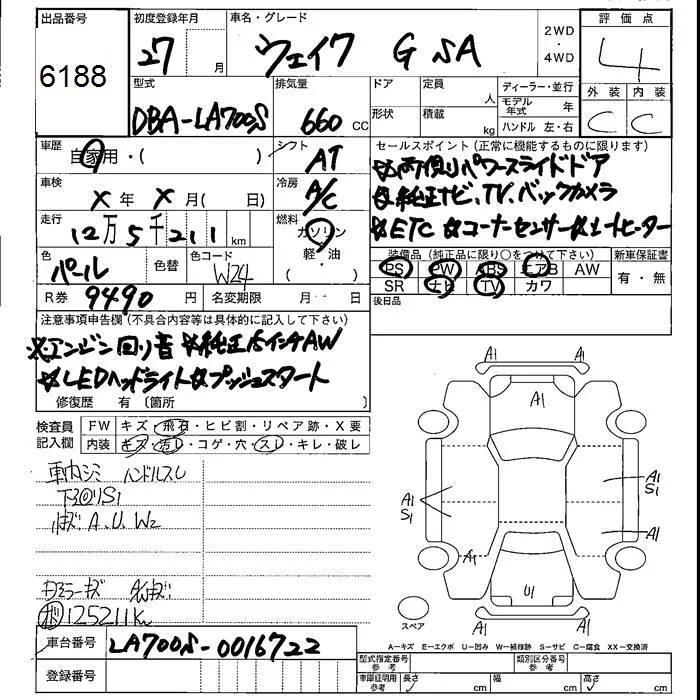 出品番号 初度登録年月 車名・グレード 2WD・4WD 評価点
6188 27 月 ウェイク G SA 4
型式 排気量 ドア 定員 人 ディーラー・並行 外装 内装
DBA-LA700S 660 CC 形状 積載 kg モデル年式 年 C C
ハンドル 左・右
車歴 自家用・( ) シフト AT セールスポイント(正常に機能するものに限ります)
☆両側パワースライドドア
車検 X 年 X 月( 日) 冷房 A/C ☆純正ナビ、TV、バックカメラ
走行 12万5千211 km 燃料 ガソリン・軽・油・( ) ☆ETC ☆コーナーセンサー☆シートヒーター
色 パール 色替 色コード W24
装備品(純正品に限り○をつけて下さい) 新車保証書
PS PW ABS エアB AW 有・無
SR ナビ TV カワ
R券 9490 円 名変期限 月 日 後日品
注意事項申告欄(不具合内容等は具体的に記入して下さい)
※エンジン回り音 ☆純正15インチAW
☆LEDヘッドライト☆プッシュスタート
修復歴 有 〔箇所 〕
検査員記入欄 FW キズ・飛石・ヒビ割・リペア跡・X要
内装 キズ・汚レ・コゲ・穴・スレ・キレ・破レ
車内シミ ハンドルスレ
下回りS1
A.U.W2
ドアミラーキズ
125211Km
A1 A1
A1
A1 S1
A1 S1
A1
A1
U1
A1 A1
スペア
A=キズ E=エクボ U=凹み W=補修跡 S=サビ C=腐食 XX=交換済
車台番号 LA700S-0016722
登録番号
型式指定番号 参考 類別区分番号 参考
車庫証明用 参考 長さ cm 幅 cm 高さ cm